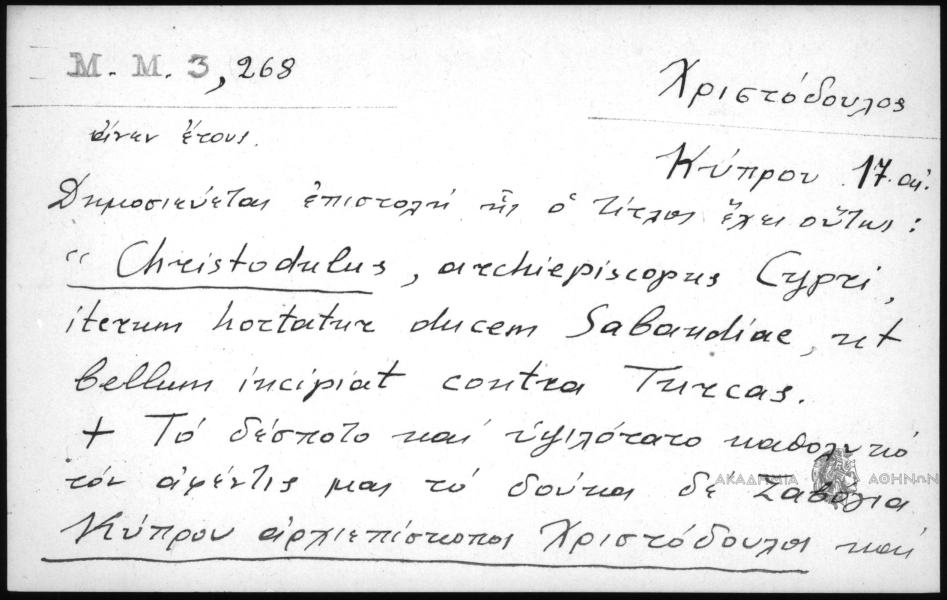 M. M. 3, 268
Χριστόδουλος
ἄνευ ἔτους.
Κύπρου 17. αἰ.
Δημοσιεύεται ἐπιστολή ἧς ὁ τίτλος ἔχει οὕτως:
“Christodulus, archiepiscopus Cypri,
iterum hortatur ducem Sabaudiae, ut
bellum incipiat contra Turcas.
+ Τό δέσποτο καί ὑψιλότατο καθολικό
τόν ἀφέντις μας τό δούκα δέ Σαβόλια
ΑΚΑΔΗΜΙΑ ΑΘΗΝΩΝ
Κύπρου ἀρχιεπίσκοπος Χριστόδουλος καί